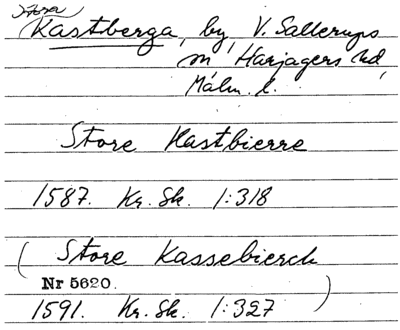 Stora
Kastberga, by, V. Sallerups
sn Harjagers hd,
Malm. l.
Store Kastbierre
1587. Kr. Sk. 1:318
(Store Kassebierck
Nr 5620.
1591. Kr. Sk. 1:327)